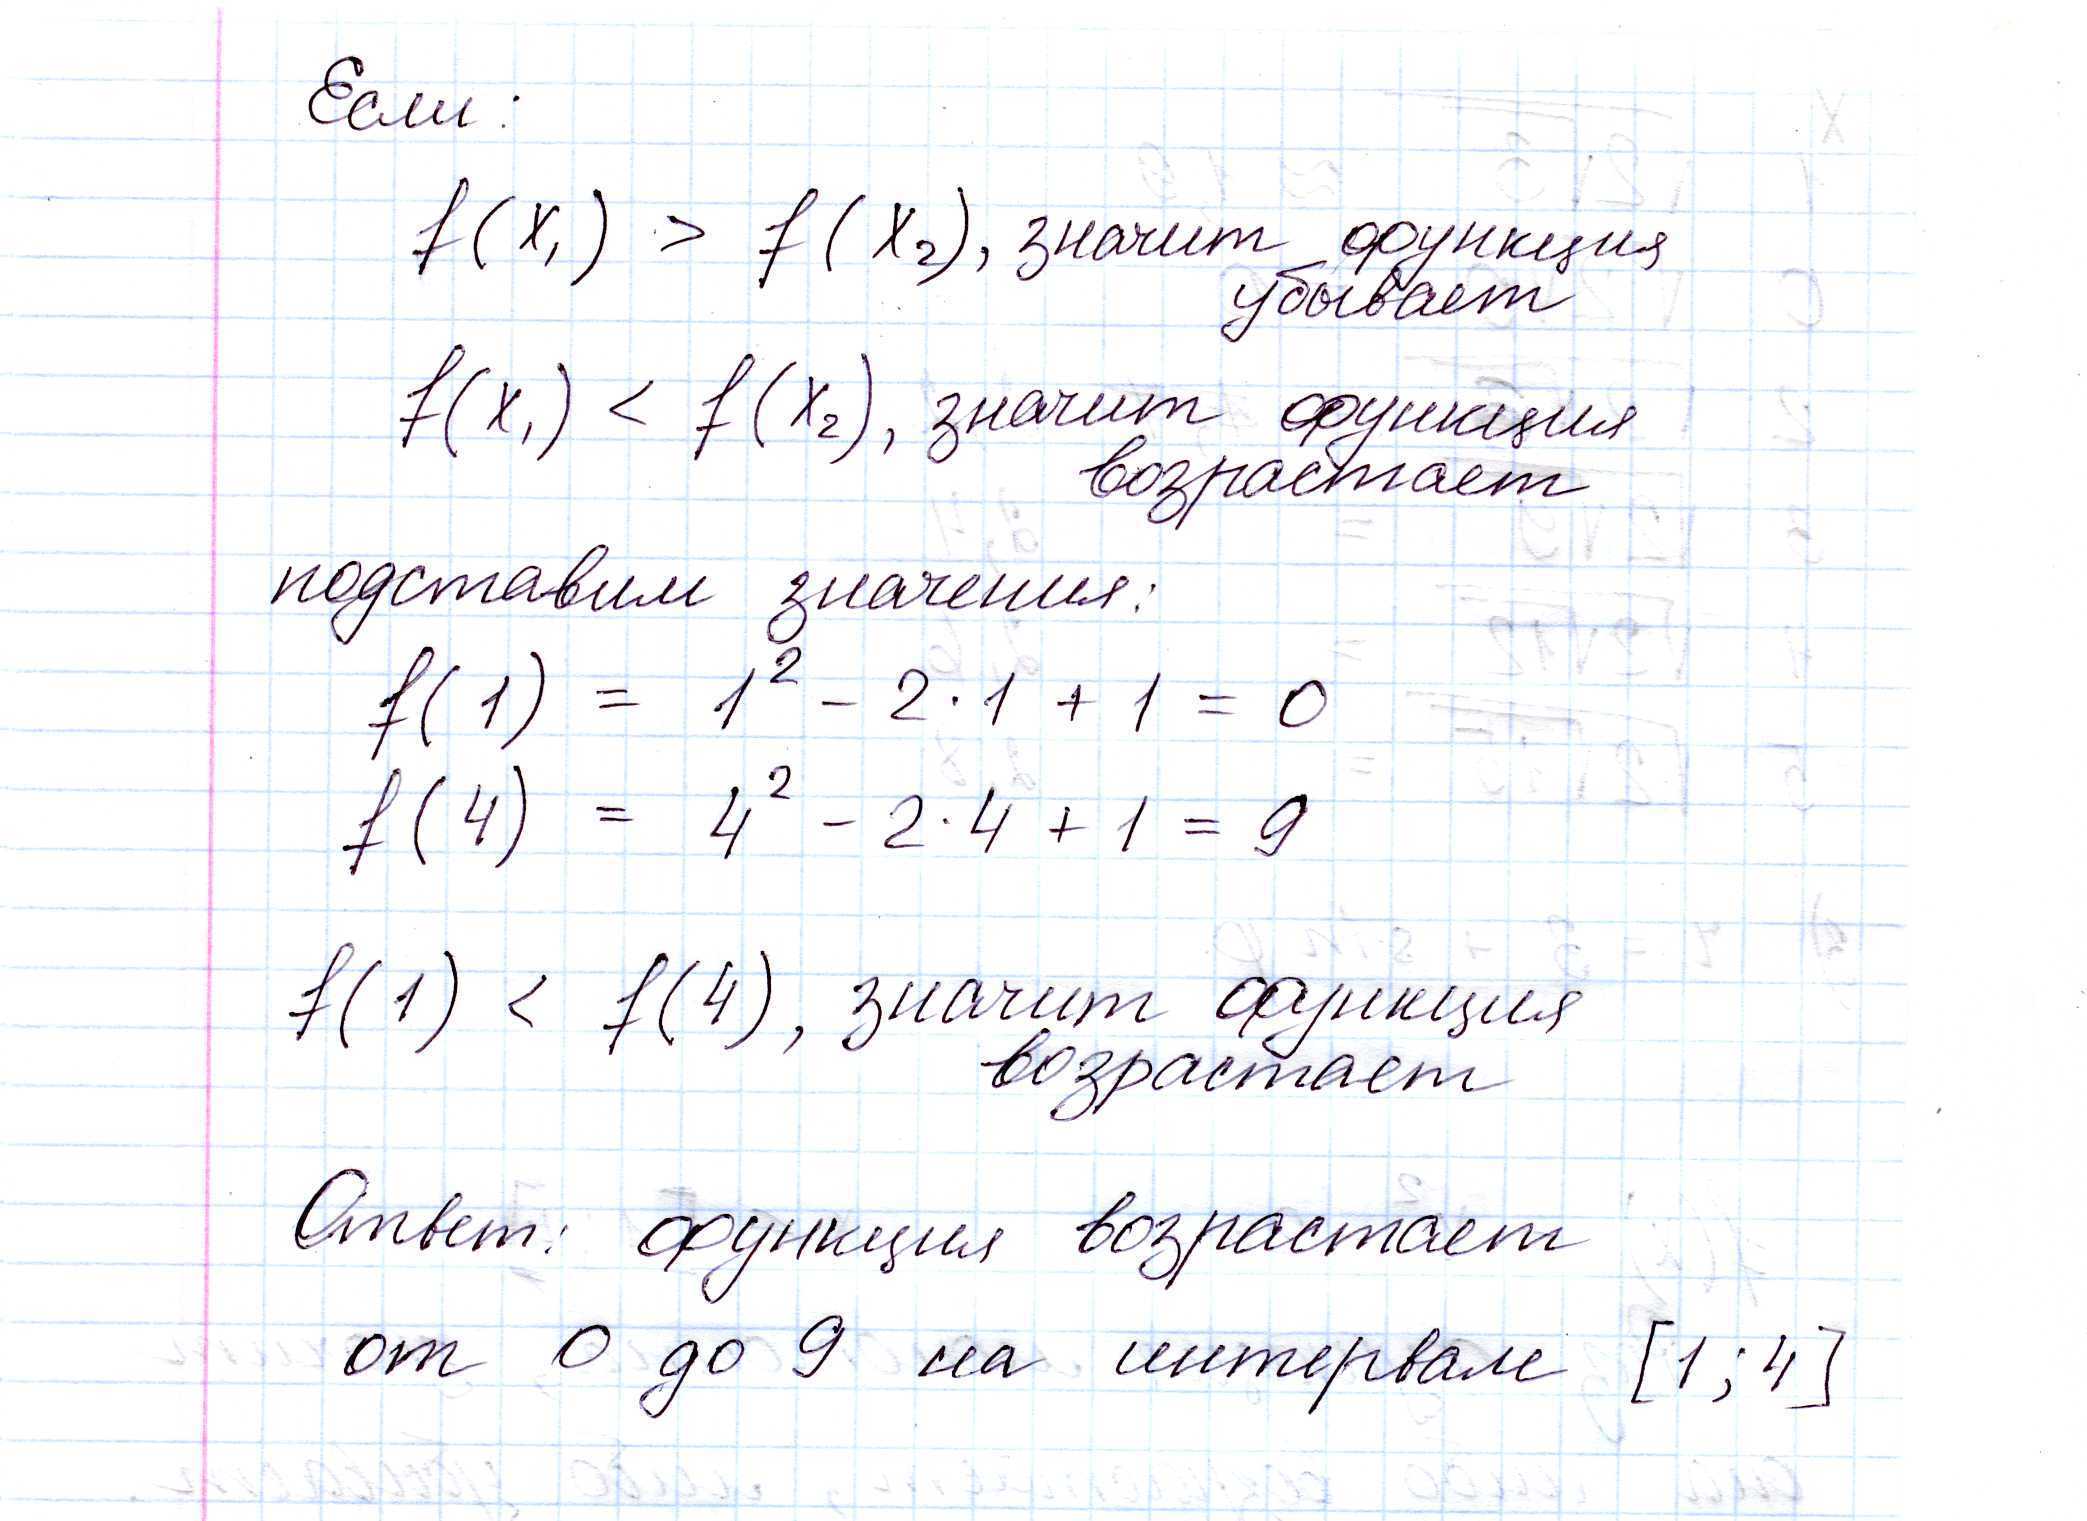 Если:
f(x₁) > f(x₂), значит функция
убывает
f(x₁) < f(x₂), значит функция
возрастает
подставим значения:
f(1) = 1² - 2·1 + 1 = 0
f(4) = 4² - 2·4 + 1 = 9
f(1) < f(4), значит функция
возрастает
Ответ: функция возрастает
от 0 до 9 на интервале [1; 4]